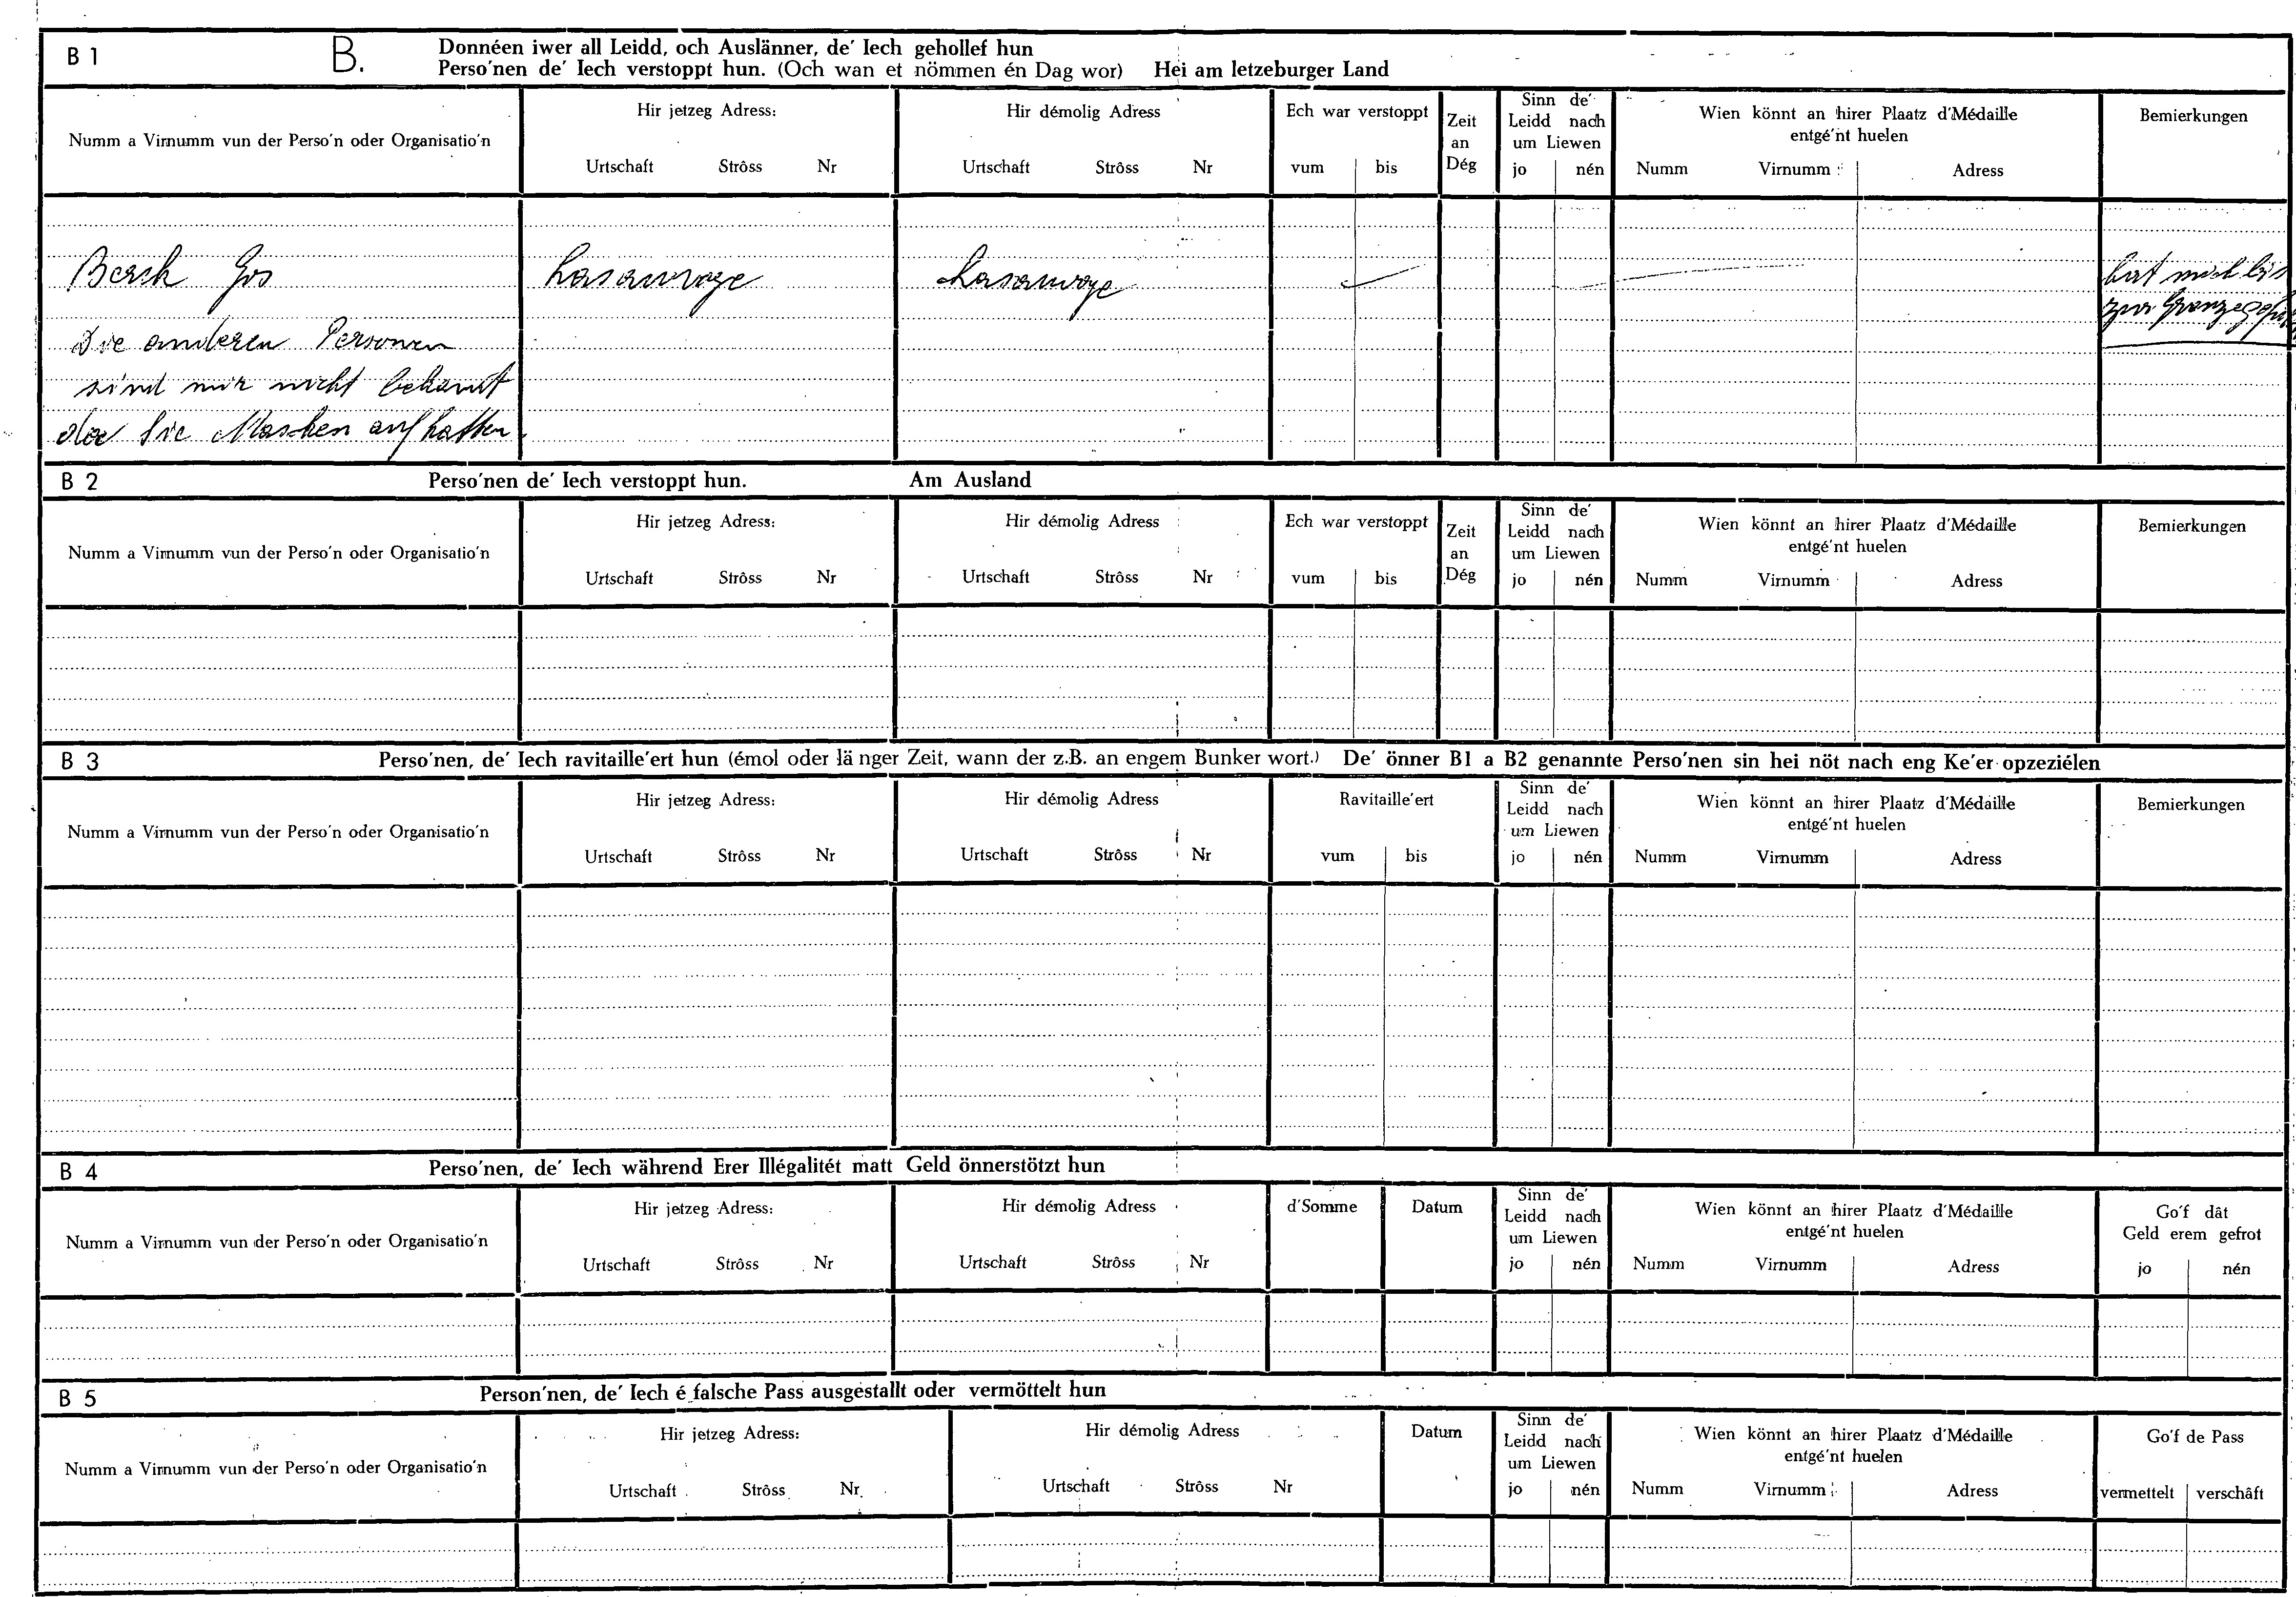 B 1 B. Donnéen iwer all Leidd, och Auslänner, de' Iech gehollef hun
Perso'nen de' Iech verstoppt hun. (Och wan et nömmen én Dag wor) Hei am letzeburger Land
Numm a Virnumm vun der Perso'n oder Organisatio'n
Hir jetzeg Adress:
Urtschaft Strôss Nr
Hir démolig Adress
Urtschaft Strôss Nr
Ech war verstoppt
vum bis
Zeit
an
Dég
Sinn de'
Leidd nach
um Liewen
jo nén
Wien könnt an hirer Plaatz d'Médaille
entgé'nt huelen
Numm Virnumm Adress
Bemierkungen
Berck Jos Lasauvage Lasauvage hat mich bis
zur Grenze
Die anderen Personen
sind mir nicht bekannt
da sie Masken auf hatten.
B 2 Perso'nen de' Iech verstoppt hun. Am Ausland
Numm a Virnumm vun der Perso'n oder Organisatio'n
Hir jetzeg Adress:
Urtschaft Strôss Nr
Hir démolig Adress
Urtschaft Strôss Nr
Ech war verstoppt
vum bis
Zeit
an
Dég
Sinn de'
Leidd nach
um Liewen
jo nén
Wien könnt an hirer Plaatz d'Médaille
entgé'nt huelen
Numm Virnumm Adress
Bemierkungen
B 3 Perso'nen, de' Iech ravitaille'ert hun (émol oder länger Zeit, wann der z.B. an engem Bunker wort.) De' önner B1 a B2 genannte Perso'nen sin hei nöt nach eng Ke'er opzeziélen
Numm a Virnumm vun der Perso'n oder Organisatio'n
Hir jetzeg Adress:
Urtschaft Strôss Nr
Hir démolig Adress
Urtschaft Strôss Nr
Ravitaille'ert
vum bis
Sinn de'
Leidd nach
um Liewen
jo nén
Wien könnt an hirer Plaatz d'Médaille
entgé'nt huelen
Numm Virnumm Adress
Bemierkungen
B 4 Perso'nen, de' Iech während Erer Illégalitét matt Geld önnerstötzt hun
Numm a Virnumm vun der Perso'n oder Organisatio'n
Hir jetzeg Adress:
Urtschaft Strôss Nr
Hir démolig Adress
Urtschaft Strôss Nr
d'Somme
Datum
Sinn de'
Leidd nach
um Liewen
jo nén
Wien könnt an hirer Plaatz d'Médaille
entgé'nt huelen
Numm Virnumm Adress
Go'f dât
Geld erem gefrot
jo nén
B 5 Person'nen, de' Iech é falsche Pass ausgestallt oder vermöttelt hun
Numm a Virnumm vun der Perso'n oder Organisatio'n
Hir jetzeg Adress:
Urtschaft Strôss Nr
Hir démolig Adress
Urtschaft Strôss Nr
Datum
Sinn de'
Leidd nach
um Liewen
jo nén
Wien könnt an hirer Plaatz d'Médaille
entgé'nt huelen
Numm Virnumm Adress
Go'f de Pass
vermettelt verschâft